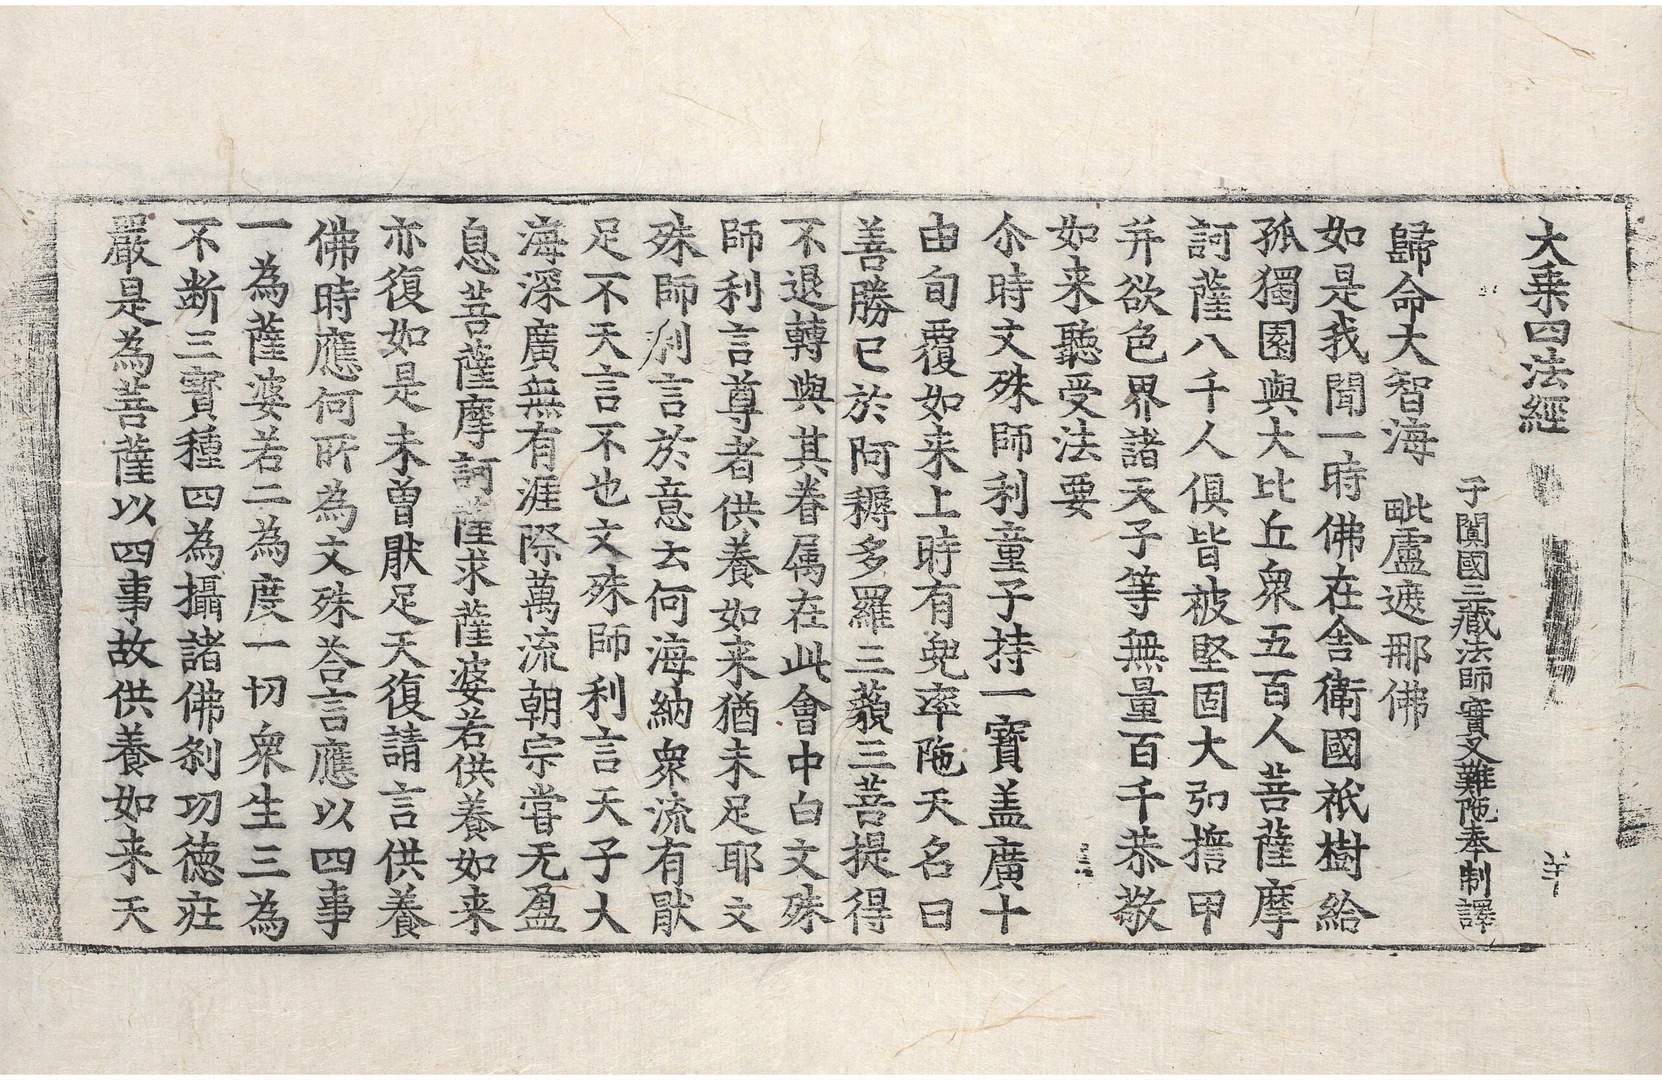 大乗四法經 羊
于闐國三藏法師實叉難陁奉 制譯
歸命大智海 毗盧遮那佛
如是我聞一時佛在舍衛國祇樹給
孤獨園與大比丘衆五百人菩薩摩
訶薩八千人俱皆被堅固大弘擔甲
并欲色界諸天子等無量百千恭敬
如来聽受法要
尒時文殊師利童子持一寶盖廣十
由旬覆如来上時有兜率陁天名曰
善勝已於阿耨多羅三藐三菩提得
不退轉與其眷属在此會中白文殊
師利言尊者供養如来猶未足耶文
殊師利言於意云何海納衆流有猒
足不天言不也文殊師利言天子大
海深廣無有涯際萬流朝宗嘗无盈
息菩薩摩訶薩求薩婆若供養如来
亦復如是未曾猒足天復請言供養
佛時應何所為文殊荅言應以四事
一為薩婆若二為度一切衆生三為
不断三寳種四為攝諸佛刹功德莊
嚴是為菩薩以四事故供養如来天